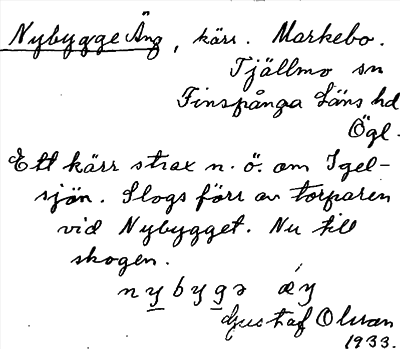 Nybygge Äng, kärr. Markebo.
Tjällmo sn
Finspånga Läns hd
Ögl.
Ett kärr strax n. ö. om Igel-
sjön. Slogs förr av torparen
vid Nybygget. Nu till
skogen.
nybygə
Gustaf Olsson
1933.